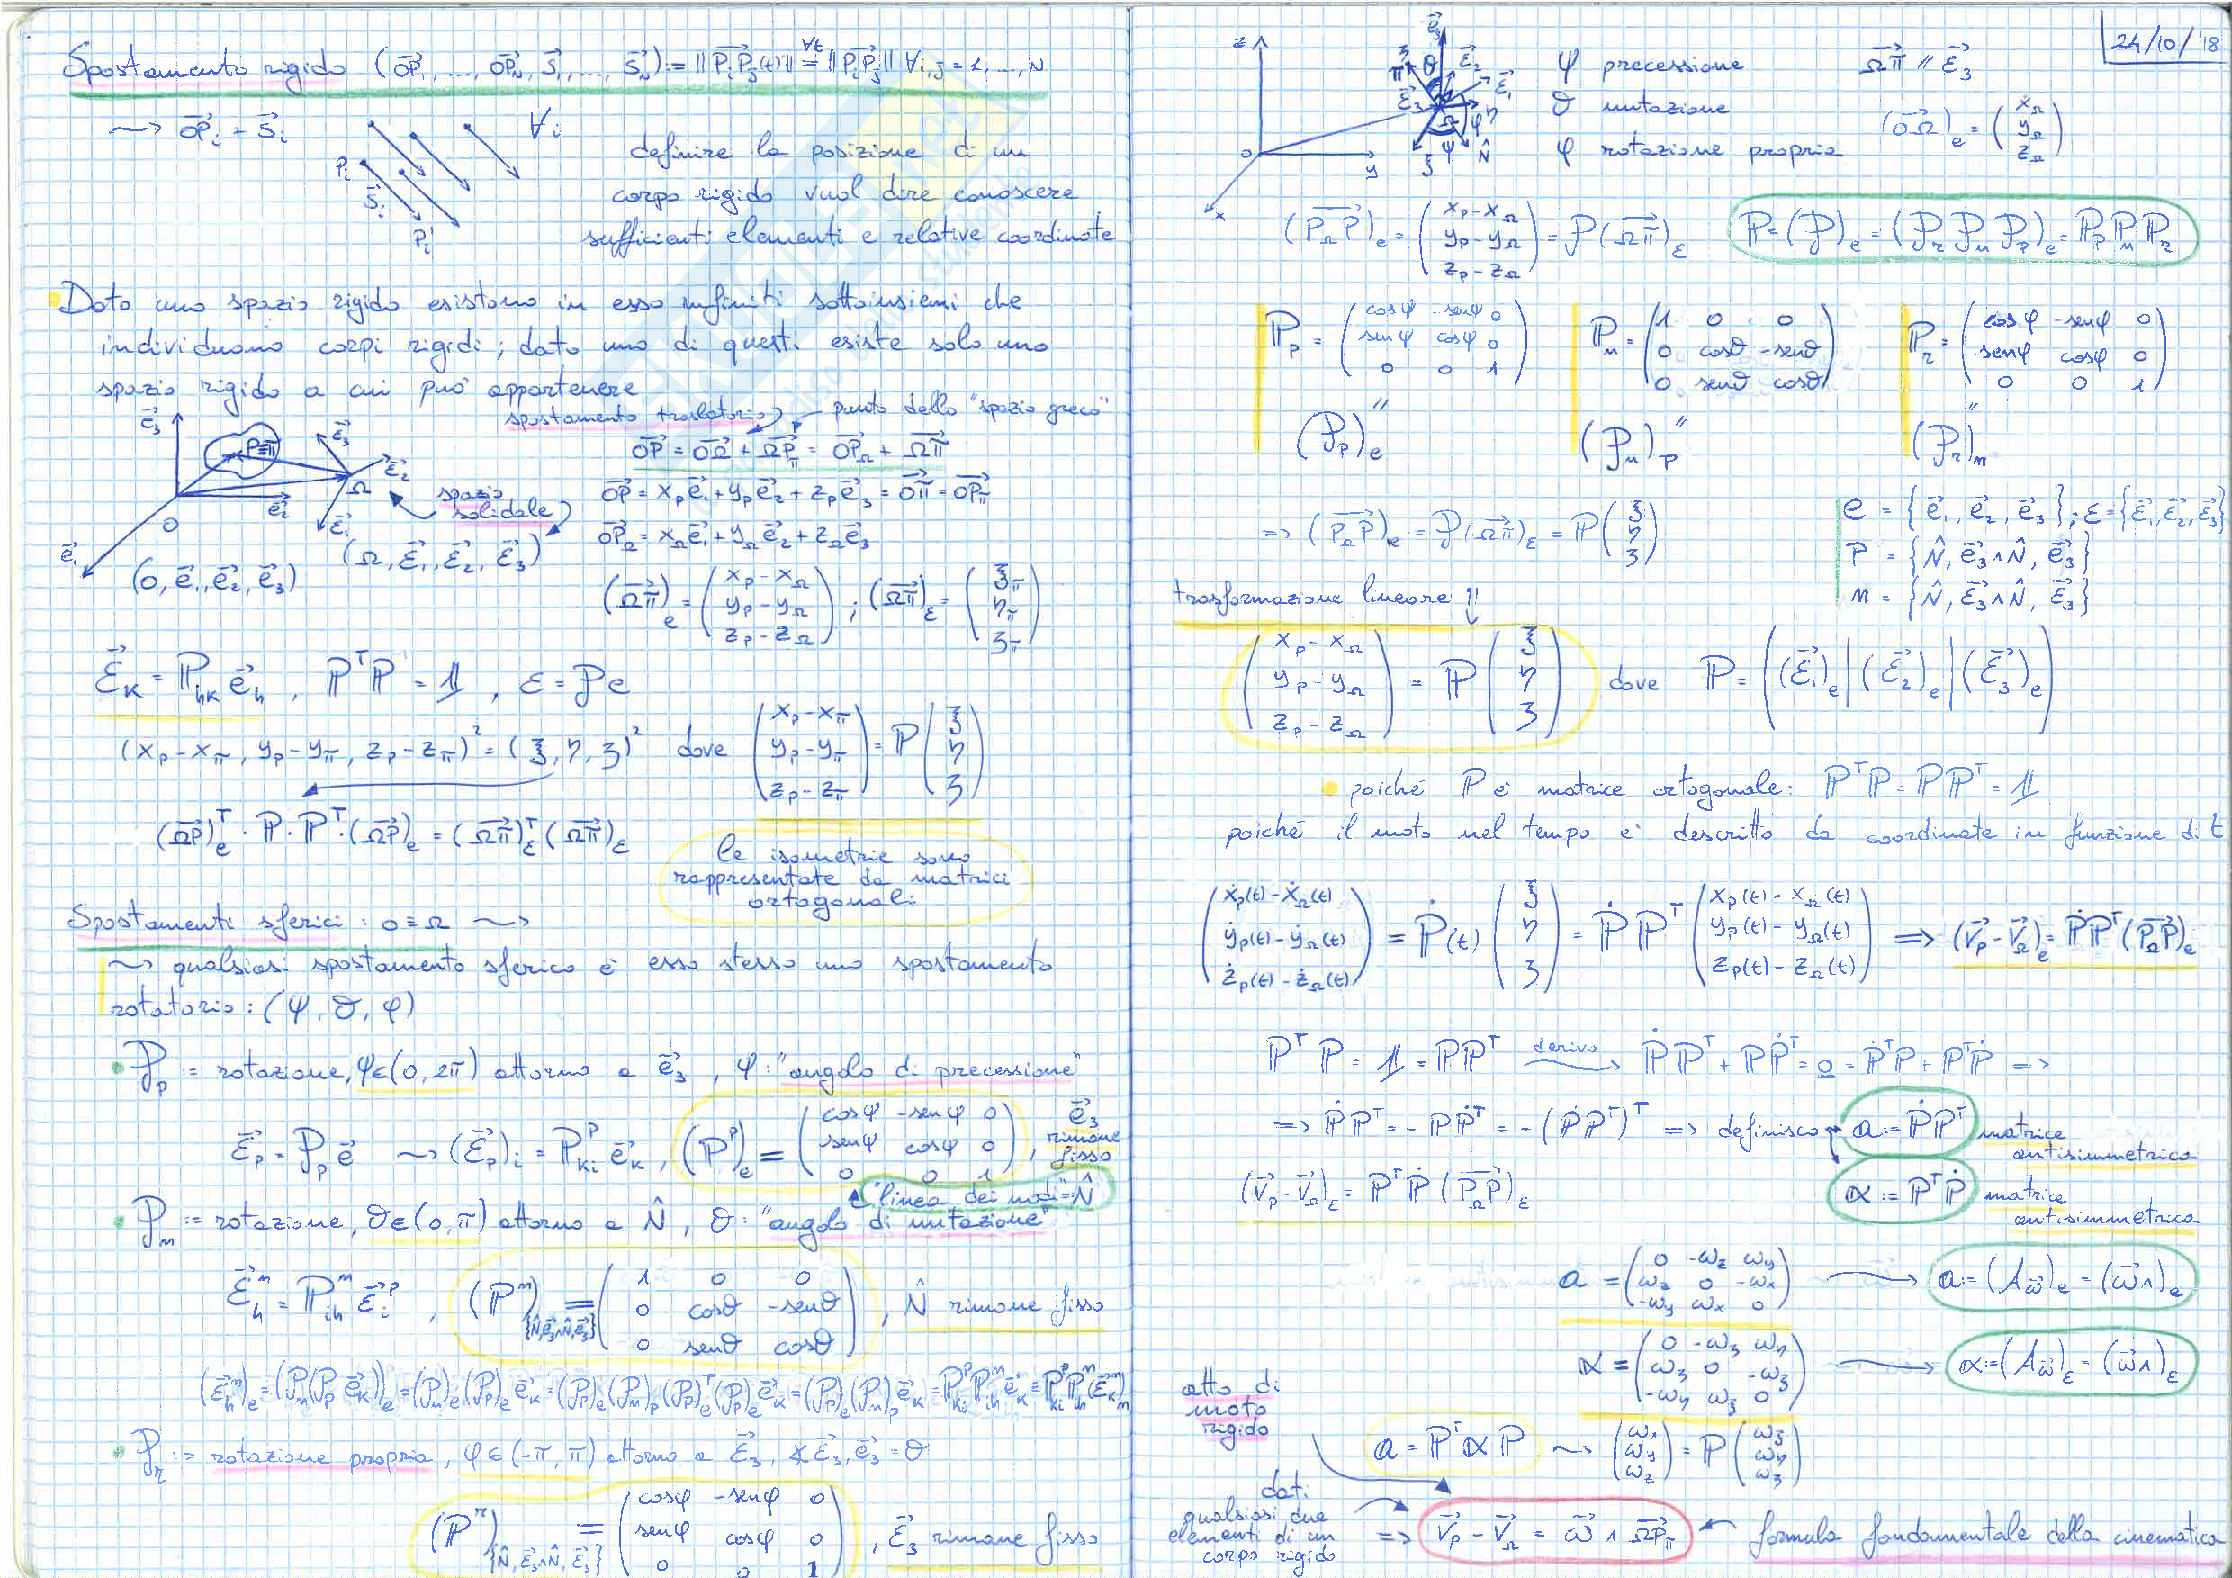 Spostamento rigido (OP₁, ..., OP_N, S₁, ..., S_N) := ||P_iP_j(t)|| =^∀t ||P_iP_j|| ∀i,j = 1, ..., N
⟿ OP_i - S_i ∀i
P_i
S_i
P_i'
definire la posizione di un
corpo rigido vuol dire conoscere
sufficienti elementi e relative coordinate
Dato uno spazio rigido esistono in esso infiniti sottoinsiemi che
individuano corpi rigidi; dato uno di questi esiste solo uno
spazio rigido a cui può appartenere
spostamento traslatorio punto dello "spazio greco"
OP = OΩ + ΩP_π = OP_Ω + Ωπ
e₃ P≡π ε₃ ε₂ Ω ε₁ O e₂ e₁
spazio
solidale
OP = x_P e₁ + y_P e₂ + z_P e₃ = Oπ = OP_π
OP_Ω = x_Ω e₁ + y_Ω e₂ + z_Ω e₃
(O, e₁, e₂, e₃) (Ω, ε₁, ε₂, ε₃)
(Ωπ)_e = (x_P - x_Ω; y_P - y_Ω; z_P - z_Ω) ; (Ωπ)_ε = (ξ_π; η_π; ζ_π)
ε_K = ℙ_hK e_h , ℙᵀℙ = 𝟙 , ε = 𝒫e
(x_P - x_π, y_P - y_π, z_P - z_π)² = (ξ, η, ζ)² dove (x_P - x_π; y_P - y_π; z_P - z_π) = ℙ (ξ; η; ζ)
(ΩP)_eᵀ · ℙ · ℙᵀ · (ΩP)_e = (Ωπ)_εᵀ (Ωπ)_ε
le isometrie sono
rappresentate da matrici
ortogonali
Spostamenti sferici : O ≡ Ω ⟿
⟿ qualsiasi spostamento sferico è esso stesso uno spostamento
rotatorio : (ψ, θ, φ)
• 𝒫_p := rotazione, ψ∈(0, 2π) attorno a e₃ , ψ : "angolo di precessione"
ε_p = 𝒫_p e ⟿ (ε_p)_i = ℙ^p_ki e_k , (ℙ^p)_e = (cosψ -senψ 0; senψ cosψ 0; 0 0 1) , e₃ rimane fisso
"linea dei nodi" = N̂
• 𝒫_n := rotazione, θ∈(0, π) attorno a N̂ , θ : "angolo di nutazione"
ε^n_h = ℙ^n_ih ε^p_i , (ℙ^n)_{N̂, e₃∧N̂, e₃} = (1 0 0; 0 cosθ -senθ; 0 senθ cosθ) , N̂ rimane fisso
(ε^n_h)_e = (𝒫_n(𝒫_p e_k))_e = (𝒫_n)_e (𝒫_p)_e e_k = (𝒫_p)_e (𝒫_n)_p (𝒫_p)_eᵀ (𝒫_p)_e e_k = (𝒫_p)_e (𝒫_n)_p e_k = ℙ^p_ki ℙ^n_ih e_k = ℙ^p_ki ℙ^n_ih (ε_k)_n
• 𝒫_r := rotazione propria, φ∈(-π, π) attorno a ε₃, ∢ε₃,e₃ = θ
(ℙ^r)_{N̂, ε₃∧N̂, ε₃} = (cosφ -senφ 0; senφ cosφ 0; 0 0 1) , ε₃ rimane fisso
24/10/'18
z e₃ ζ θ ε₂ π ε₁ ε₃ η Ω φ ψ N̂ ξ O y x
ψ precessione Ωπ // ε₃
θ nutazione (OΩ)_e = (x_Ω; y_Ω; z_Ω)
φ rotazione propria
(P_ΩP)_e = (x_P - x_Ω; y_P - y_Ω; z_P - z_Ω) = 𝒫(Ωπ)_ε ℙ = (𝒫)_e = (𝒫_r 𝒫_n 𝒫_p)_e = ℙ_p ℙ_n ℙ_r
ℙ_p = (cosψ -senψ 0; senψ cosψ 0; 0 0 1) ℙ_n = (1 0 0; 0 cosθ -senθ; 0 senθ cosθ) ℙ_r = (cosφ -senφ 0; senφ cosφ 0; 0 0 1)
" " "
(𝒫_p)_e (𝒫_n)_p (𝒫_r)_n
=> (P_ΩP)_e = 𝒫(Ωπ)_ε = ℙ (ξ; η; ζ)
e = {e₁, e₂, e₃} ; ε = {ε₁, ε₂, ε₃}
p = {N̂, e₃∧N̂, e₃}
n = {N̂, ε₃∧N̂, ε₃}
trasformazione lineare
(x_P - x_Ω; y_P - y_Ω; z_P - z_Ω) = ℙ (ξ; η; ζ) dove ℙ = ((ε₁)_e | (ε₂)_e | (ε₃)_e)
• poiché ℙ è matrice ortogonale : ℙᵀℙ = ℙℙᵀ = 𝟙
poiché il moto nel tempo è descritto da coordinate in funzione di t
(ẋ_P(t) - ẋ_Ω(t); ẏ_P(t) - ẏ_Ω(t); ż_P(t) - ż_Ω(t)) = ℙ̇(t) (ξ; η; ζ) = ℙ̇ ℙᵀ (x_P(t) - x_Ω(t); y_P(t) - y_Ω(t); z_P(t) - z_Ω(t)) => (V_P - V_Ω)_e = ℙ̇ℙᵀ(P_ΩP)_e
ℙᵀℙ = 𝟙 = ℙℙᵀ derivo → ℙ̇ℙᵀ + ℙℙ̇ᵀ = 0 = ℙ̇ᵀℙ + ℙᵀℙ̇ =>
=> ℙ̇ℙᵀ = -ℙℙ̇ᵀ = -(ℙ̇ℙᵀ)ᵀ => definisco a := ℙ̇ℙᵀ matrice
antisimmetrica
(V_P - V_Ω)_ε = ℙᵀℙ̇ (P_ΩP)_ε α := ℙᵀℙ̇ matrice
antisimmetrica
a = (0 -ω_z ω_y; ω_z 0 -ω_x; -ω_y ω_x 0) → a := (A_ω)_e = (ω∧)_e
α = (0 -ω_ζ ω_η; ω_ζ 0 -ω_ξ; -ω_η ω_ξ 0) → α := (A_ω)_ε = (ω∧)_ε
atto di
moto
rigido
a = ℙᵀαℙ ⟿ (ω_x; ω_y; ω_z) = ℙ (ω_ξ; ω_η; ω_ζ)
dati
qualsiasi due
elementi di un
corpo rigido
=> V_P - V_Ω = ω ∧ ΩP_π ← formula fondamentale della cinematica